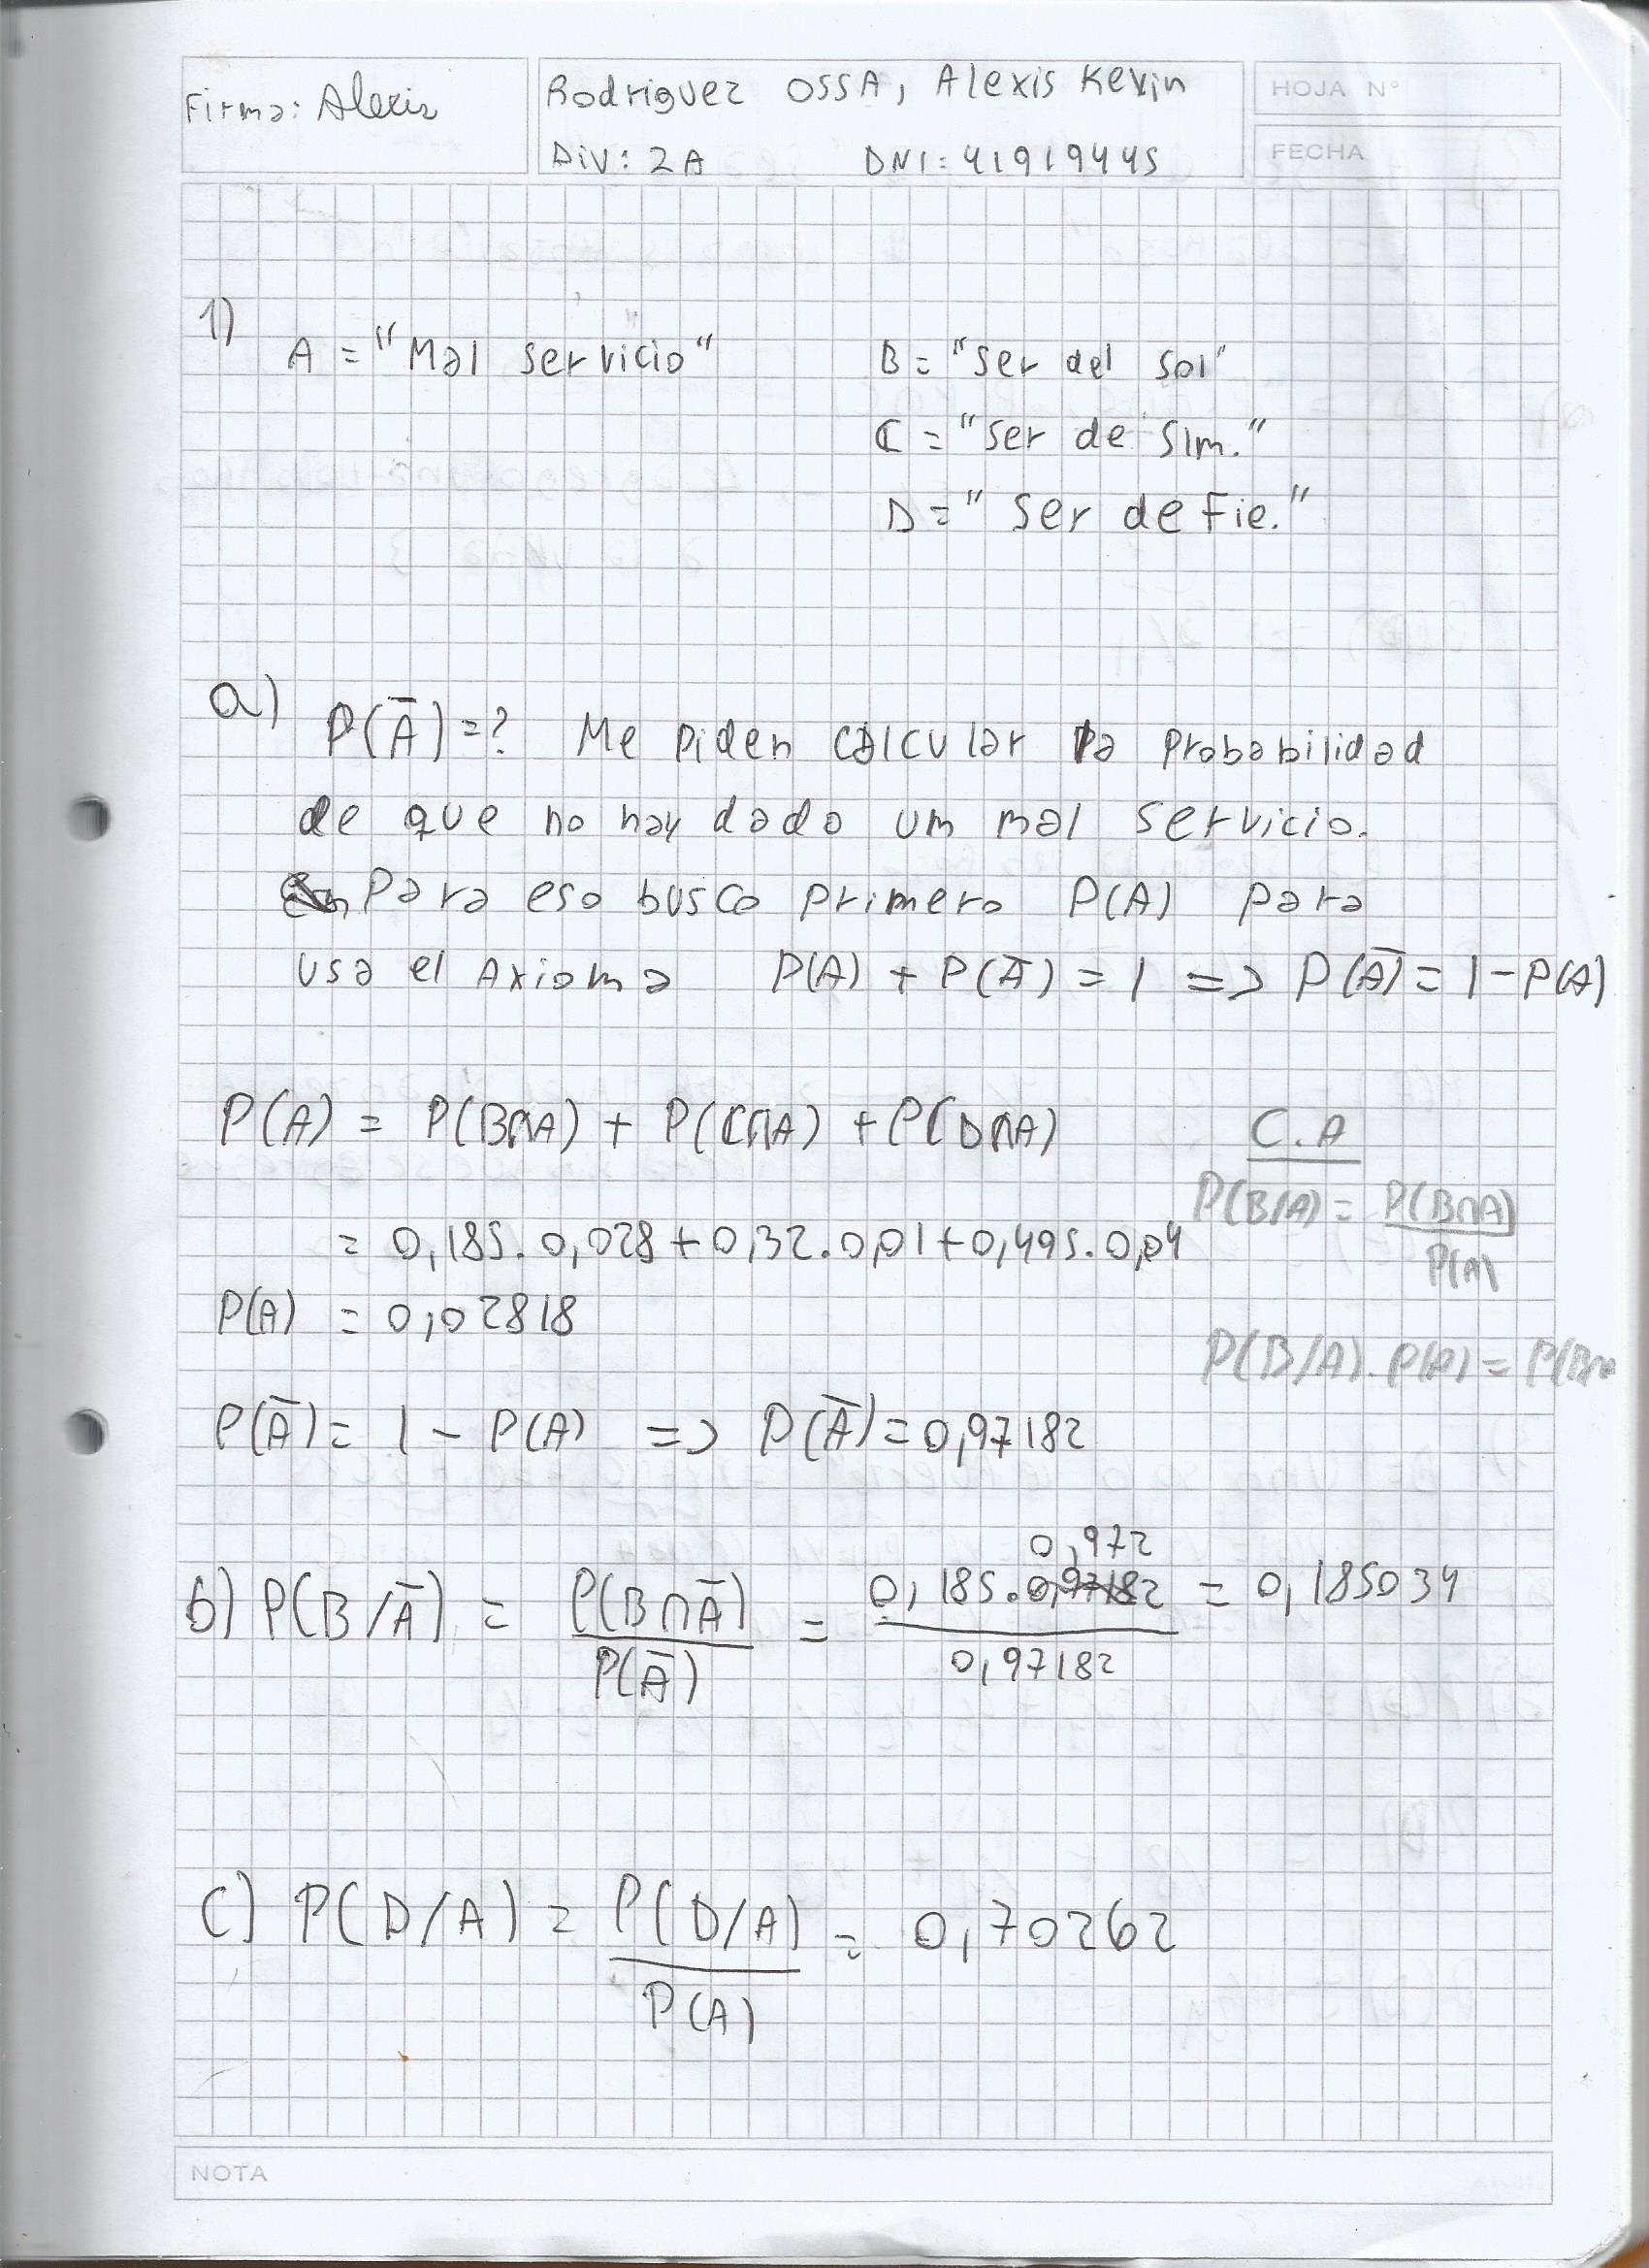 Firma: Alexis
Rodriguez OSSA, Alexis Kevin
Div: 2A DNI: 41919445
HOJA N°
FECHA
1)
A = "Mal servicio" B = "Ser del sol"
C = "Ser de sim."
D = "Ser de Fie."
a) P(Ā) = ? Me piden calcular la probabilidad
de que no hay dado um mal servicio.
Para eso busco primero P(A) para
usa el Axioma P(A) + P(Ā) = 1 => P(Ā) = 1 - P(A)
P(A) = P(B∩A) + P(C∩A) + P(D∩A)
= 0,185 . 0,028 + 0,32 . 0,01 + 0,495 . 0,04
P(A) = 0,02818
C.A
P(B/A) = P(B∩A) / P(A)
P(B/A) . P(A) = P(B∩
P(Ā) = 1 - P(A) => P(Ā) = 0,97182
b) P(B/Ā) = P(B∩Ā) / P(Ā) = 0,185 . 0,972 / 0,97182 = 0,185034
c) P(D/A) = P(D/A) / P(A) = 0,70262
NOTA